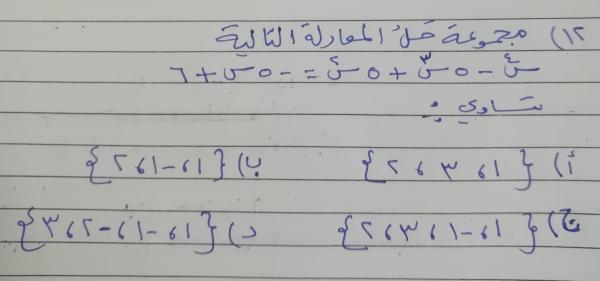 ١٢) مجموعة حل المعادلة التالية
س٤ - ٥ س٣ + ٥ س٢ = -٥ س + ٦
تساوي :
أ) {١، ٣، ٢} ب) {١، -١، ٢}
ج) {١، -١، ٣، ٢} د) {١، -١، -٢، ٣}